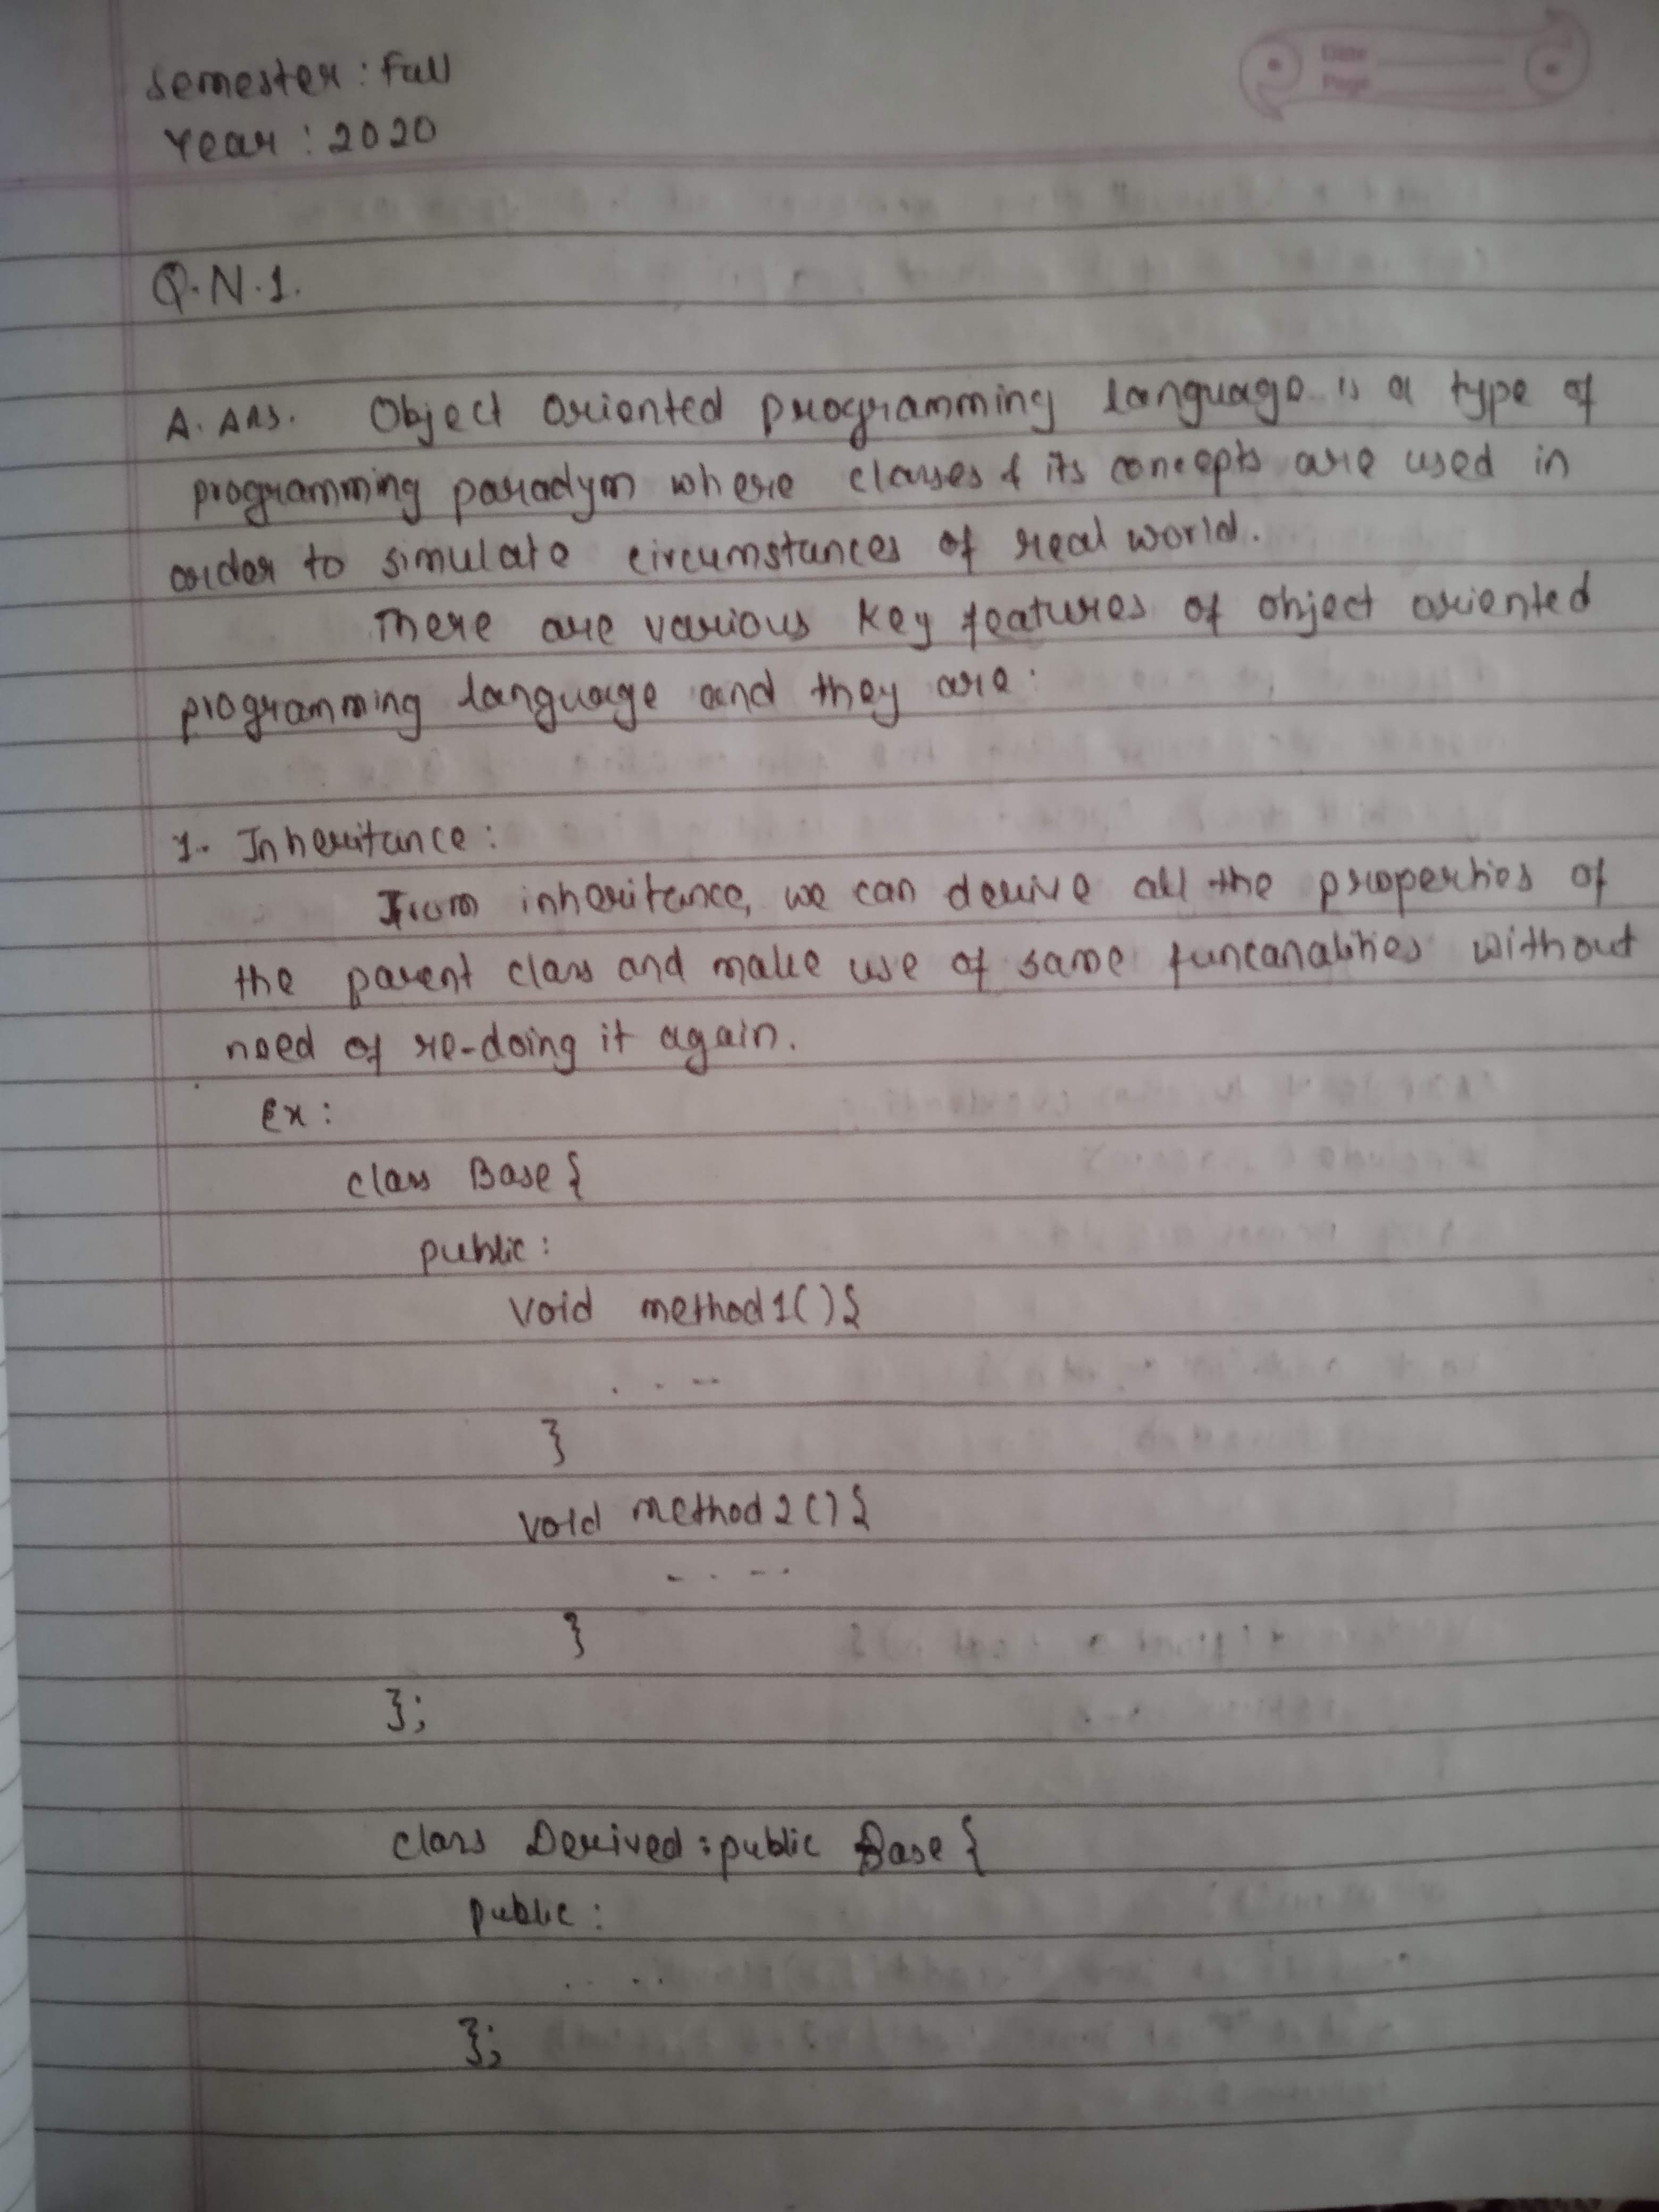 Semester : Fall
Year : 2020
Date
Page
Q.N.1.
A. Ans. Object oriented programming language is a type of
programming paradym where classes & its concepts are used in
order to simulate circumstances of real world.
There are various key features of object oriented
programming language and they are:
1. Inheritance:
From inheritance, we can derive all the properties of
the parent class and make use of same funcanalities without
need of re-doing it again.
Ex:
class Base {
public:
void method1() {
. . - -
}
void method2() {
- . - - .
}
};
class Derived : public Base {
public:
. . . .
};